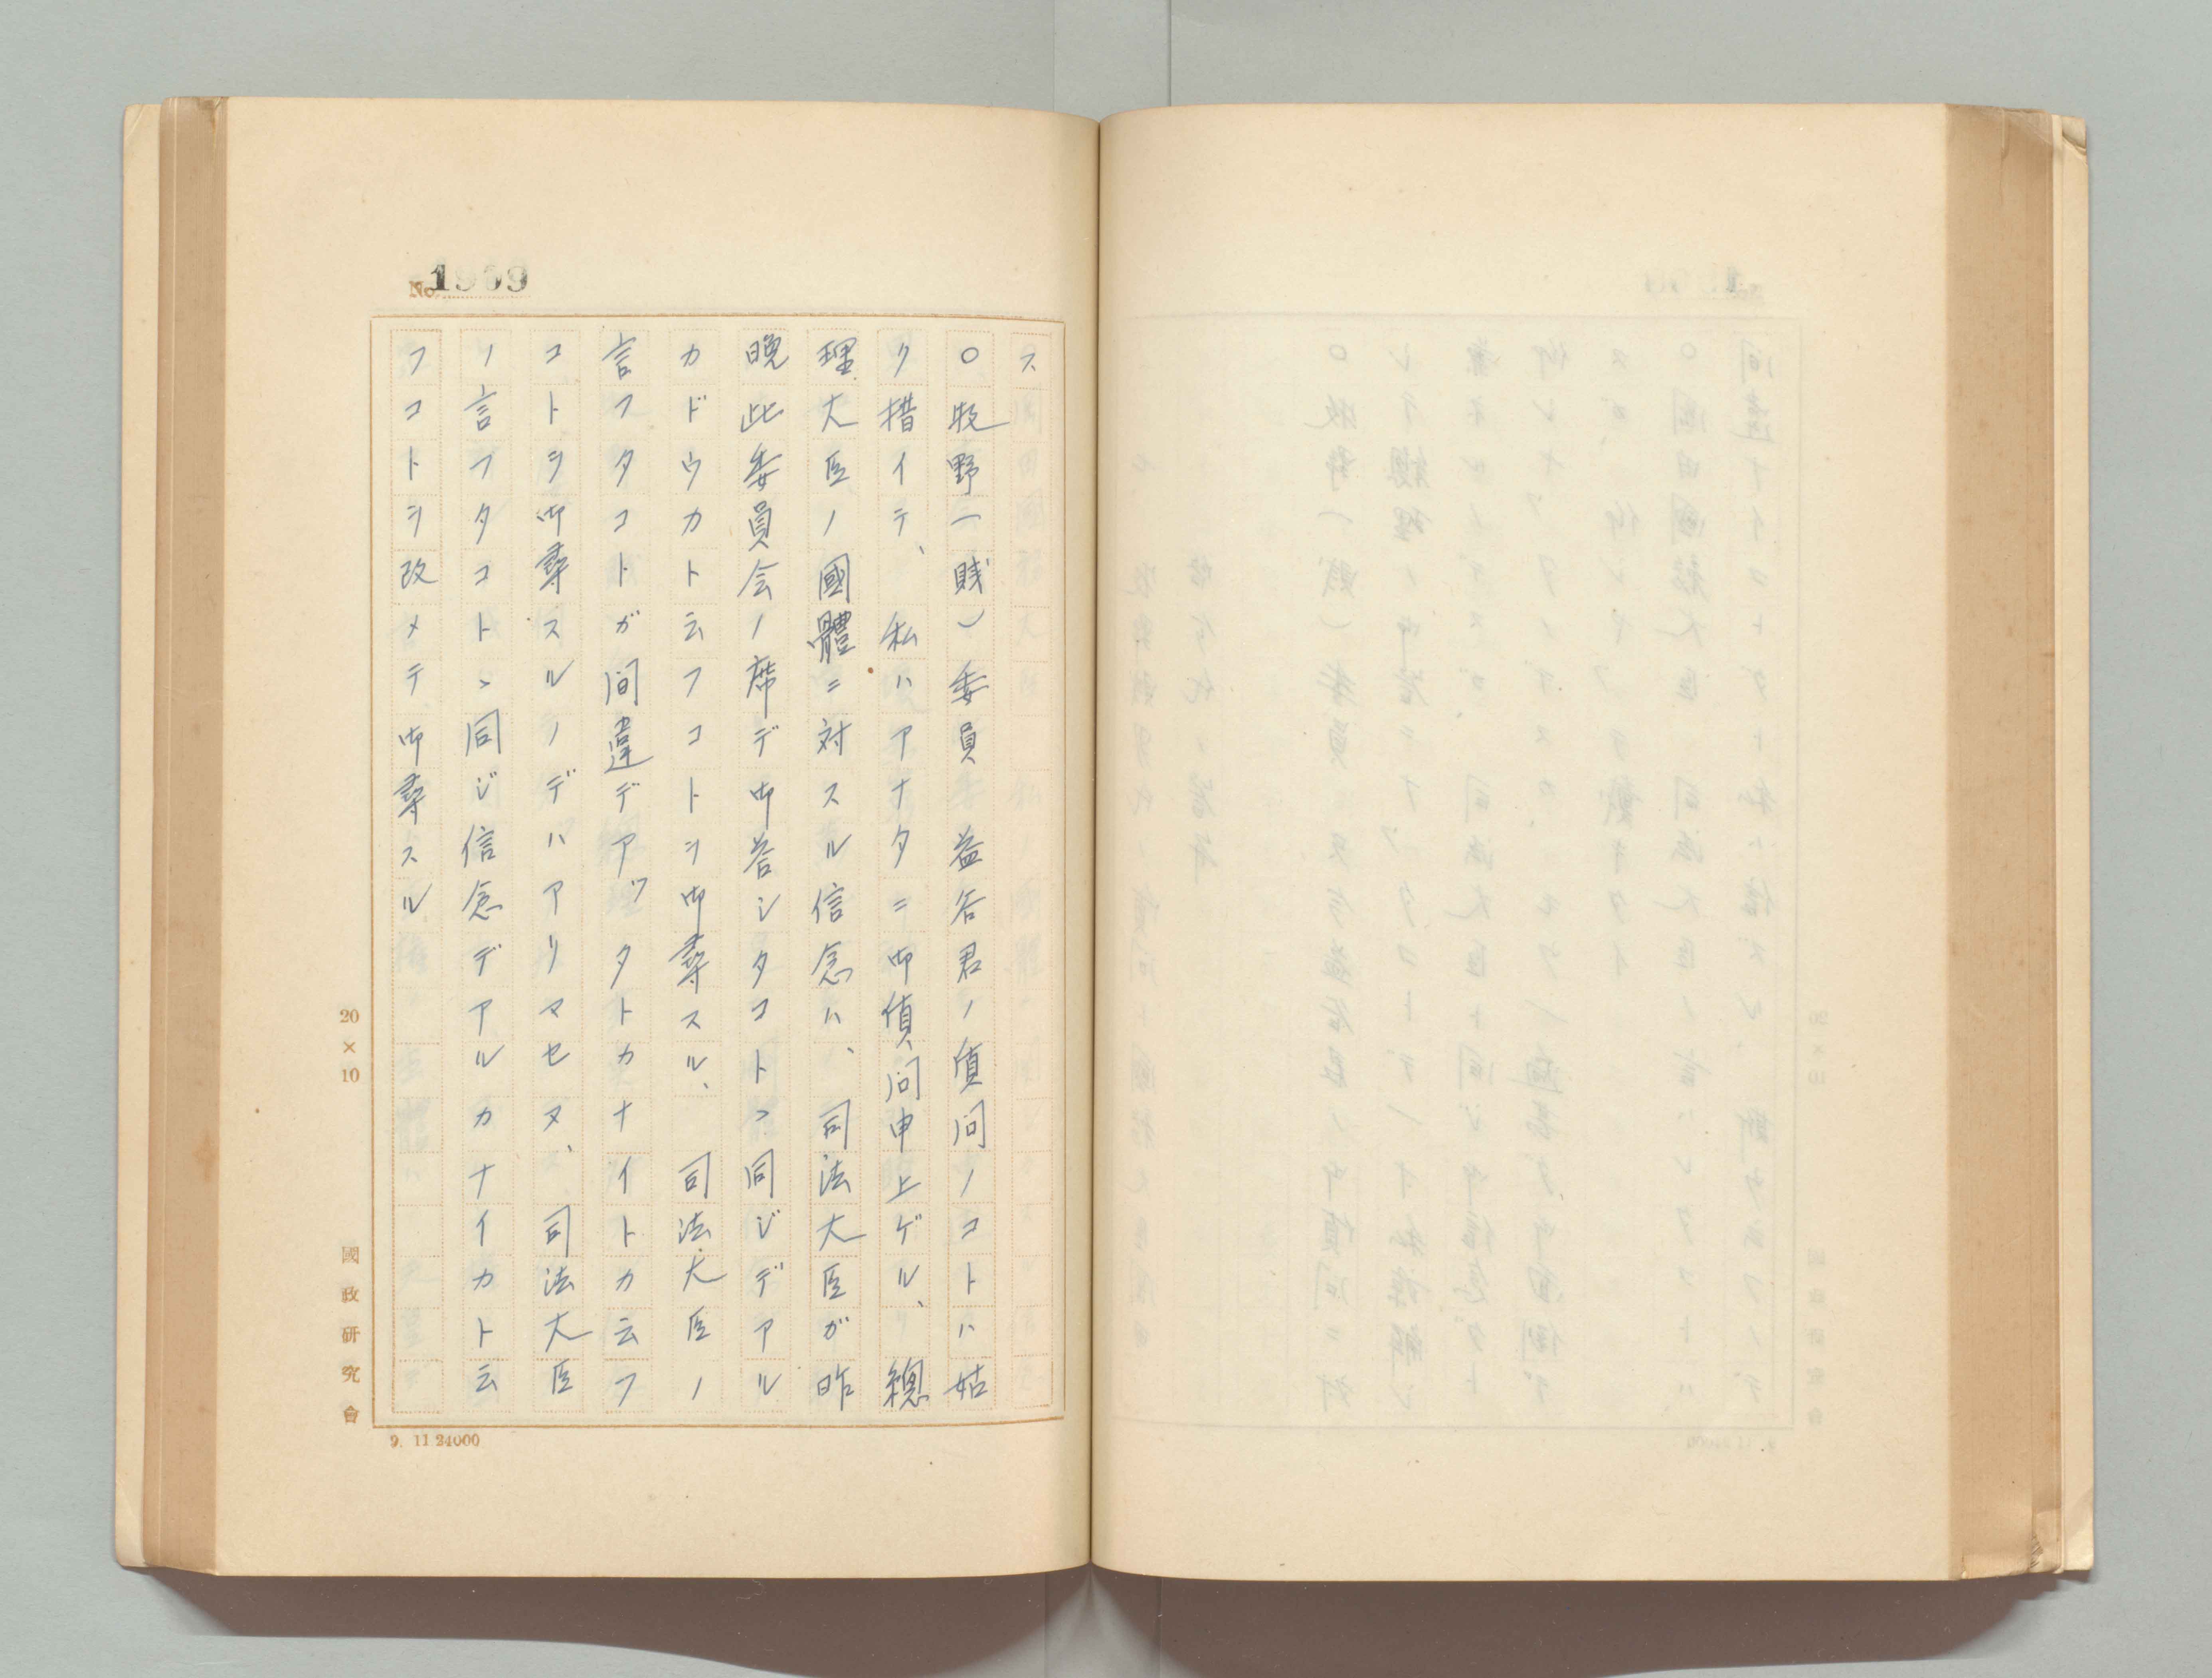 No. 1969
ス
○牧野(賤)委員 益谷君ノ質問ノコトハ姑
ク措イテ、私ハアナタニ御質問申上ゲル、總
理大臣ノ國體ニ対スル信念ハ、司法大臣ガ昨
晩此委員会ノ席デ御答シタコトヽ同ジデアル
カドウカト云フコトヲ御尋スル、司法大臣ノ
言フタコトガ間違デアッタトカナイトカ云フ
コトヲ御尋スルノデハアリマセヌ、司法大臣
ノ言フタコトヽ同ジ信念デアルカナイカト云
フコトヲ改メテ御尋スル
20×10
國政研究會
9. 11 24000